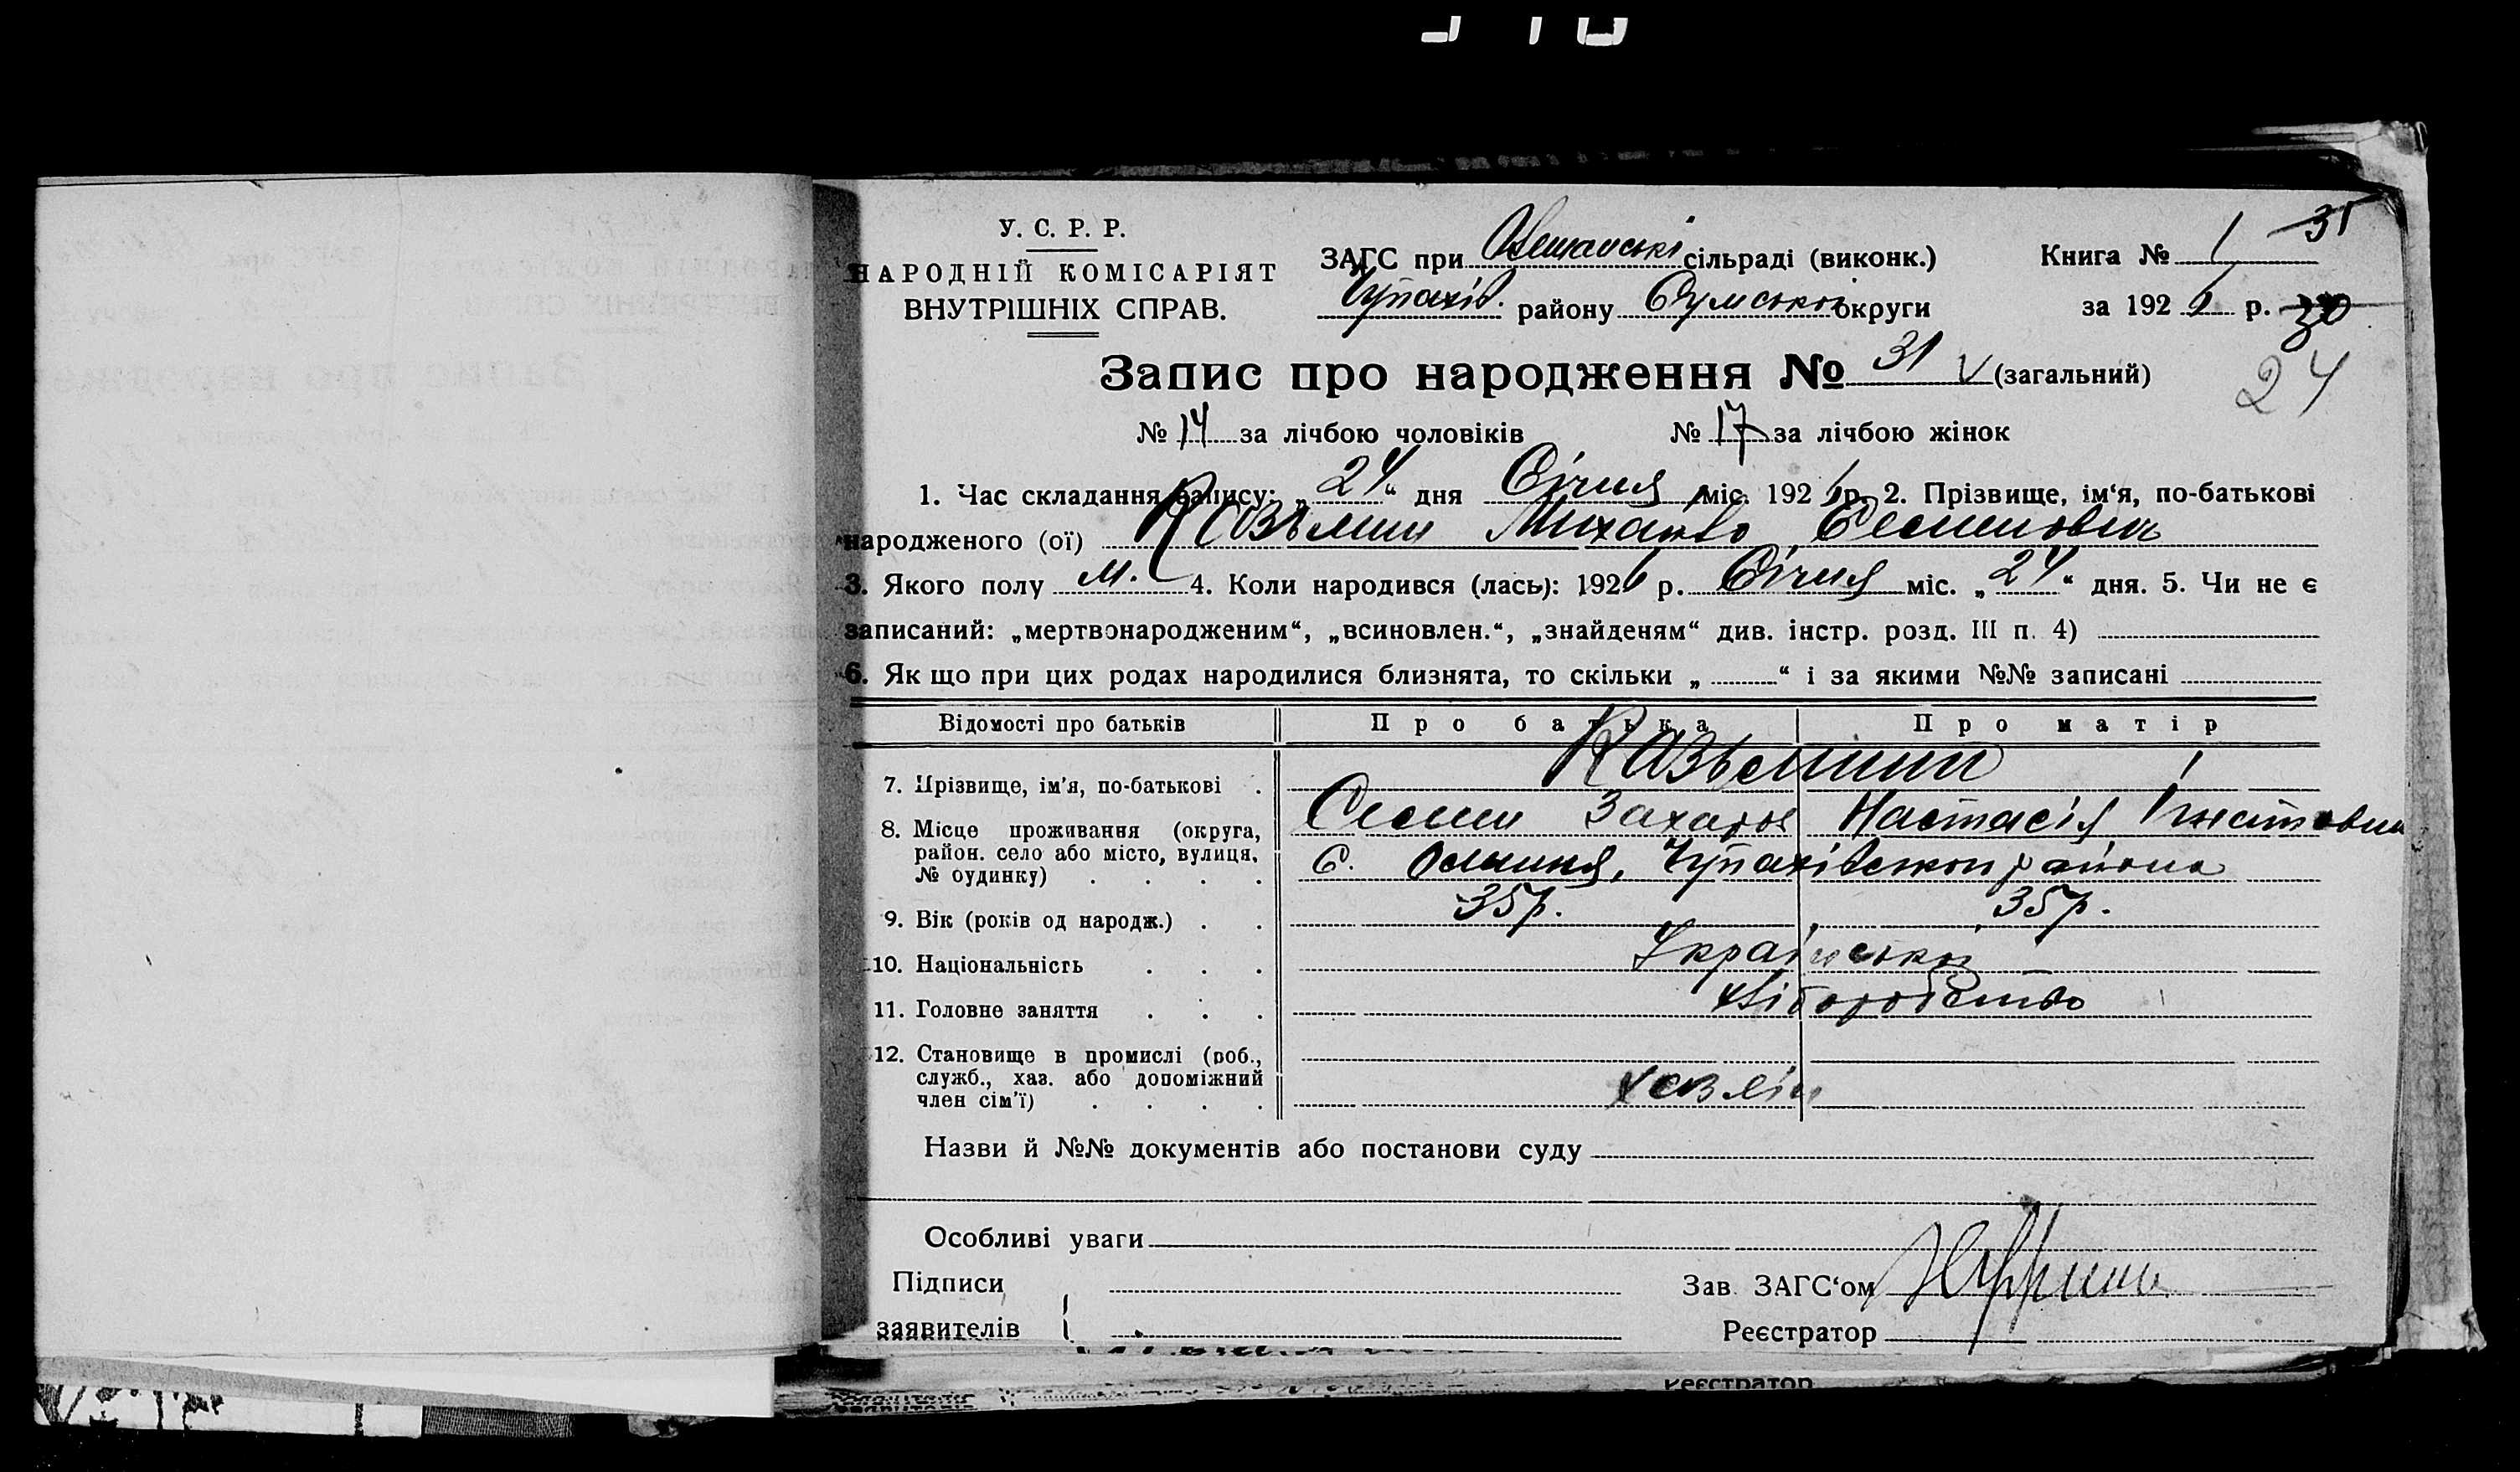 У. С. Р. Р.
НАРОДНІЙ КОМІСАРІЯТ
ВНУТРІШНІХ СПРАВ.
ЗАГС при сільраді (виконк.)
Чупахів. району Сумської округи
Книга № 1 35
за 1926 р. 30
24
Запис про народження № 31 V (загальний)
№ 14 за лічбою чоловіків № 17 за лічбою жінок
1. Час складання запису: „24“ дня Січня міс. 1926 р. 2. Прізвище, ім‘я, по-батькові
народженого (ої) Козьмин Михайло Семенович
3. Якого полу м. 4. Коли народився (лась): 1926 р. Січня міс. „24“ дня. 5. Чи не є
записаний: „мертвонародженим“, „всиновлен.“, „знайденям“ див. інстр. розд. III п. 4)
6. Як що при цих родах народилися близнята, то скільки „ “ і за якими №№ записані
Відомості про батьків Про батька Про матір
7. Прізвище, ім'я, по-батькові . Козьмини
8. Місце проживання (округа, район. село або місто, вулиця, № будинку) . . . . Семен Захаров Настасія
с. Чупахівского района
9. Вік (років од народж.) . . 35 р. 35 р.
10. Національність . . . Українській
11. Головне заняття . . . хліборобство
12. Становище в промислі (роб., служб., хаз. або допоміжний член сім'ї) . . . .
Назви й №№ документів або постанови суду
Особливі уваги
Підписи
заявителів
Зав. ЗАГС‘ом
Реєстратор
Реєстратор